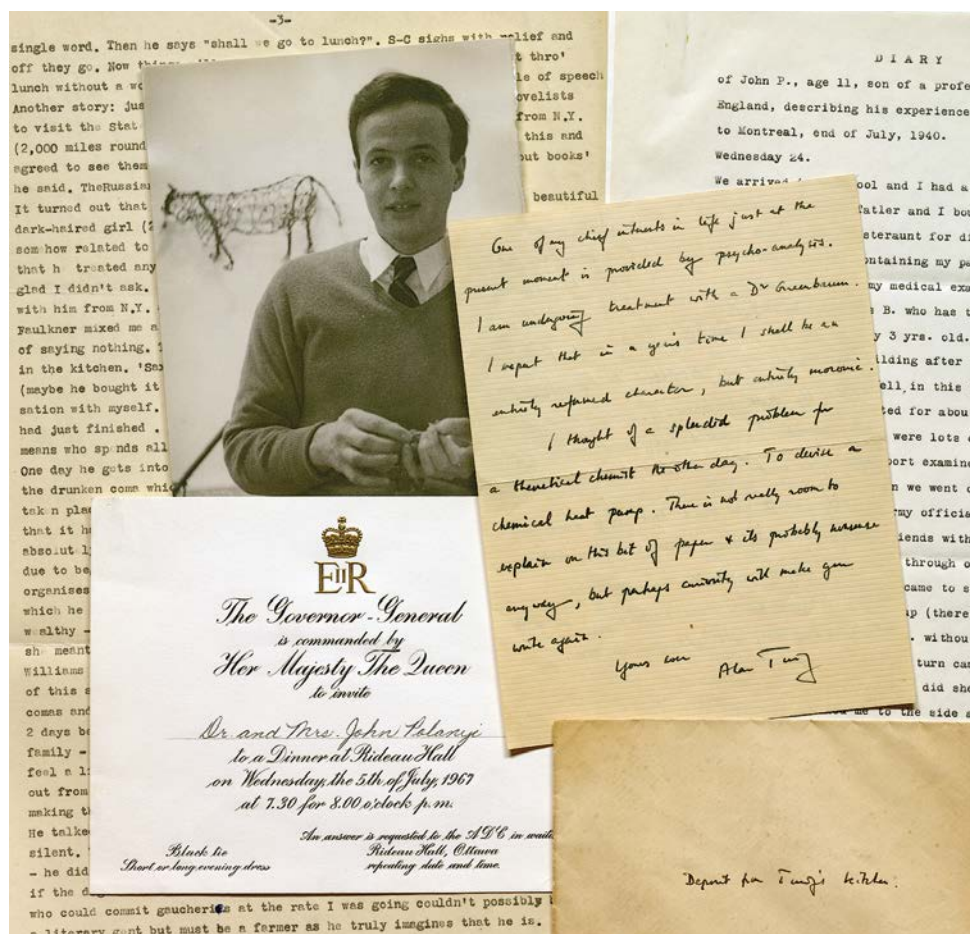 -3-
single word. Then he says "shall we go to lunch?". S-C sighs with relief and
off they go. Now
thro'
lunch without a
of speech
Another story:
ovelists
to visit the
from N.Y.
(2,000 miles round
this and
agreed to see them
out books'
he said. TheRussian
It turned out that
beautiful
dark-haired girl (2
som how related to
that h  treated any
glad I didn't ask.
with him from N.Y.
Faulkner mixed me a
of saying nothing.
in the kitchen.
(maybe he bought it
sation with myself.
had just finished .
means who sp nds all
One day he gets into
the drunken coma
tak n
that it
absolut
due to be
organises
which he
w althy -
sh  meant
Williams
of this
comas and
2 days
family -
feel a
out from
making
He talked
silent.
- he did
if the
who could commit gaucheries at the rate I was going couldn't possibly
a literary gent but must be a farmer as he truly imagines that he is.
DIARY
of John P., age 11, son of a
England, describing his
to Montreal, end of July, 1940.
Wednesday 24.
We arrived
ool and I had a
and I
for
ontaining my
my medical
B. who has
3 yrs. old.
lding after
ell, in this
ted for
were lots
ort
n we went
rmy
iends with
through
came to
(there
withou
turn
did she
to the side
One of my chief interests in life just at the
present moment is provided by psycho-analysis.
I am undergoing treatment with a Dr Greenbaum.
I expect that in a year's time I shall be an
entirely reformed character, but entirely moronic.
I thought of a splendid problem for
a theoretical chemist the other day. To devise a
chemical heat pump. There is not really room to
explain on this bit of paper & its probably nonsense
anyway, but perhaps curiosity will make you
write again.
Yours ever
Alan Turing
EIIR
The Governor-General
is commanded by
Her Majesty The Queen
to invite
Dr. and Mrs. John Polanyi
to a Dinner at Rideau Hall
on Wednesday, the 5th of July, 1967
at 7.30 for 8.00 o'clock p.m.
An answer is requested to the A.D.C. in
Black tie
Rideau Hall, Ottawa
Short or long evening dress
repeating date and time.
Deposit for Turing's kitchen.